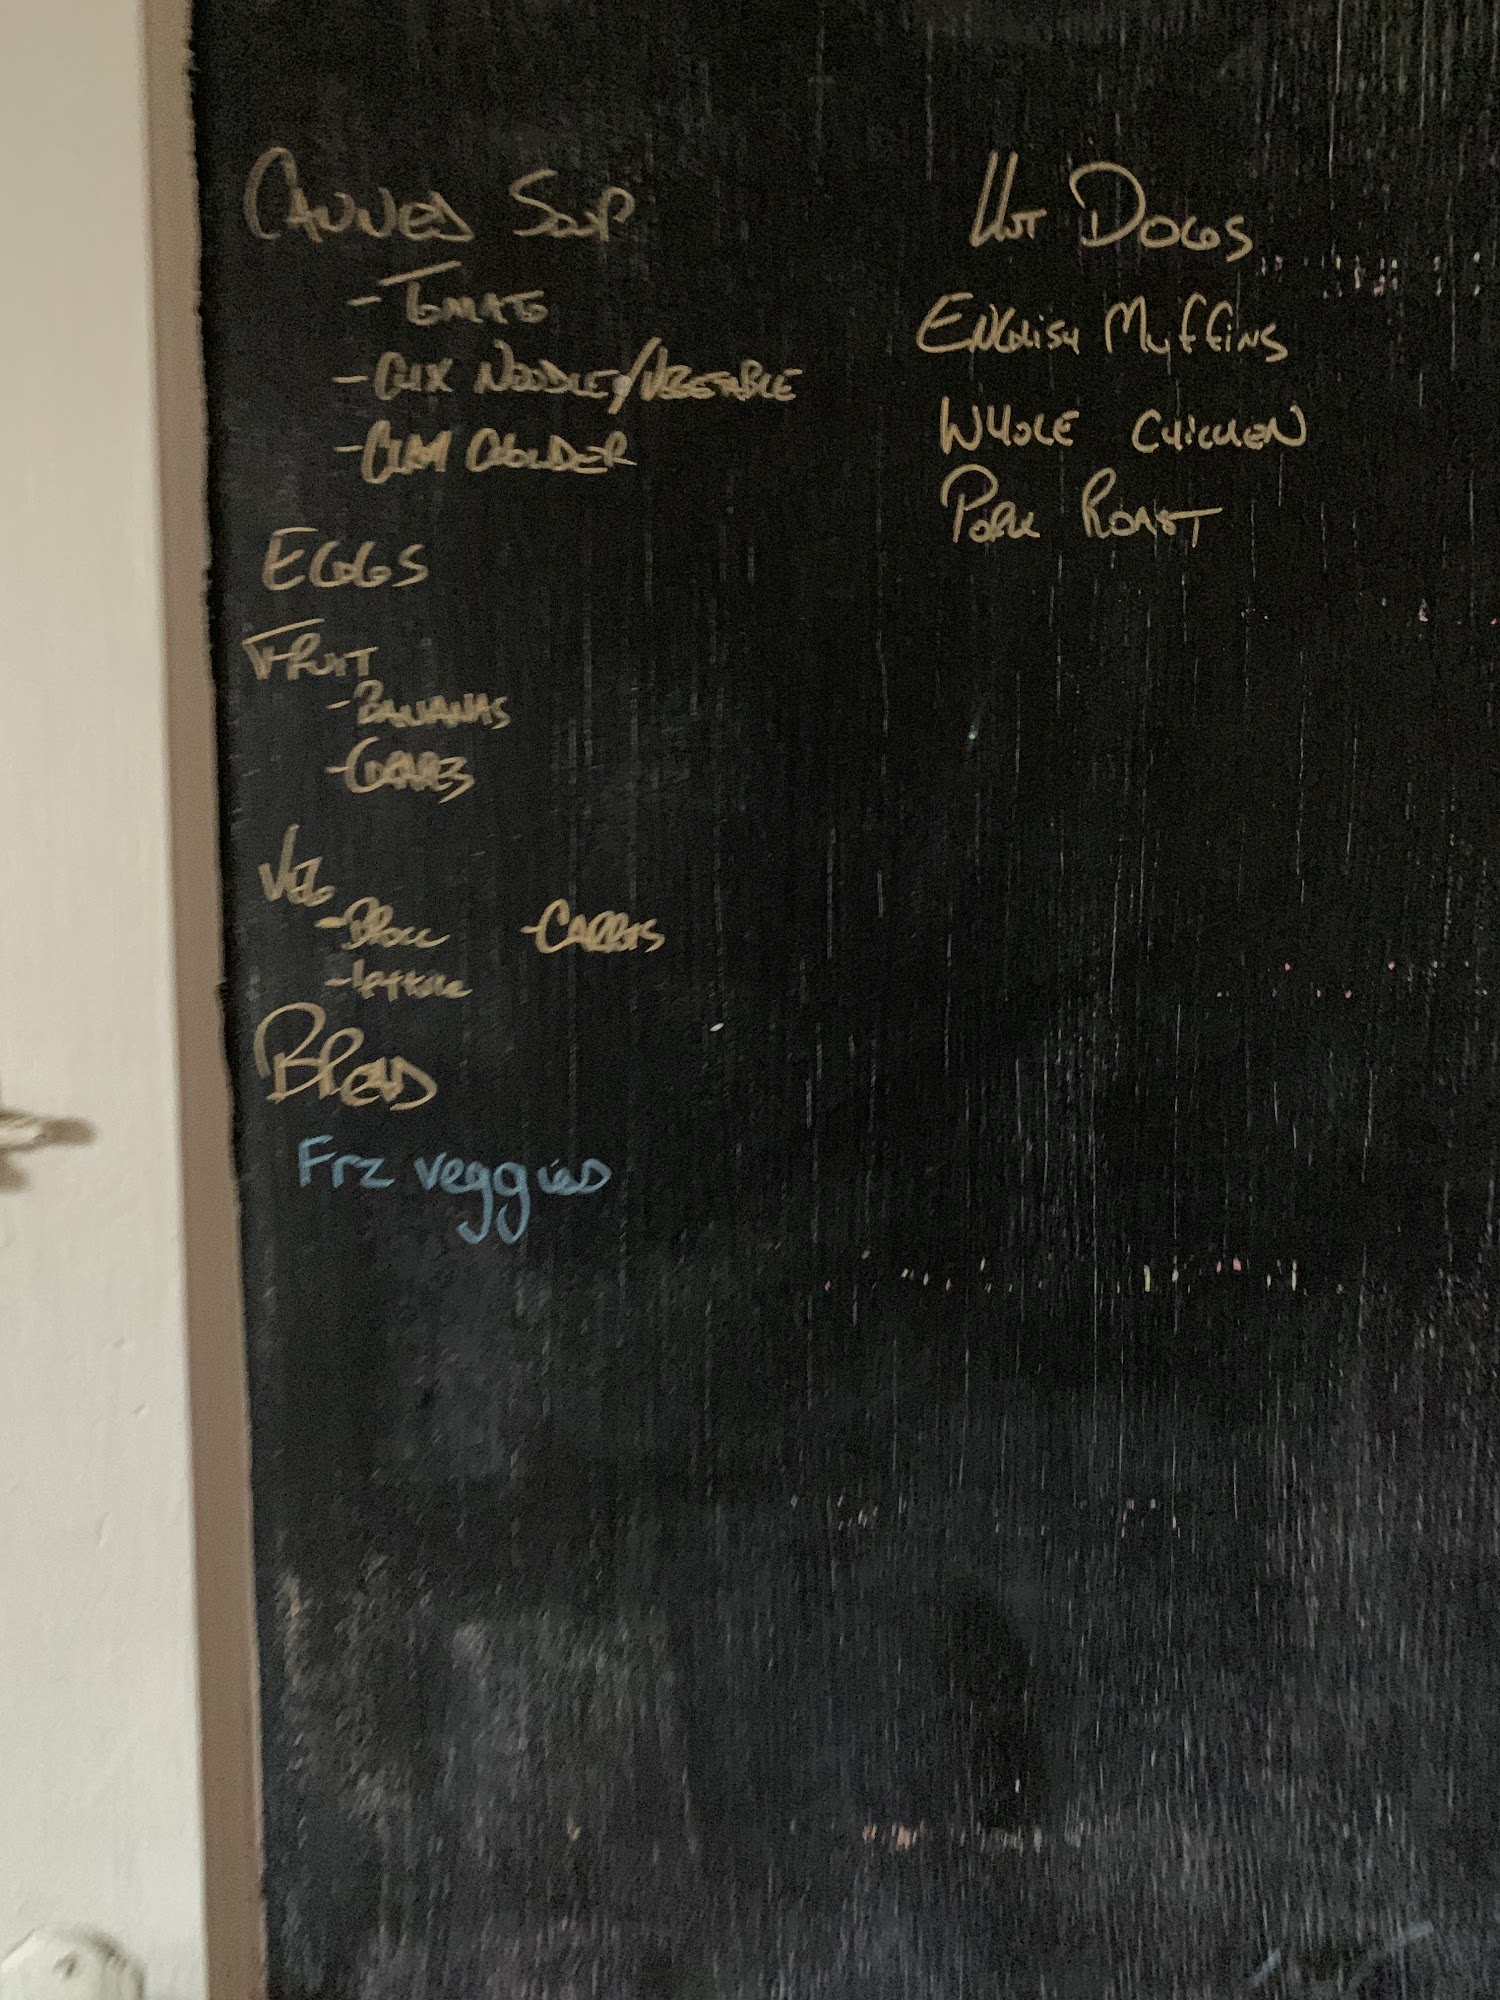 CANNED SOUP
- TOMATO
- CHX NOODLE/VEGETABLE
- CLAM CHOWDER
EGGS
FRUIT
- BANANAS
- GRAPES
VEG
- Brocc - CARROTS
- lettuce
BREAD
Frz veggies
HOT DOGS
ENGLISH MUFFINS
WHOLE CHICKEN
PORK ROAST